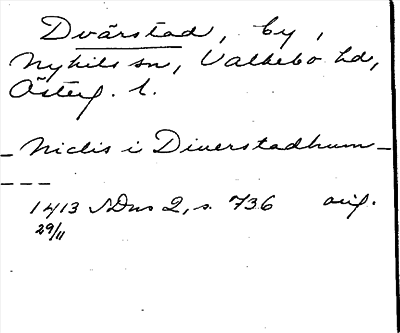 Dvärstad, by,
Nykils sn, Valkebo hd,
Österg. l.
_ Niclis i Diuerstadhum _
_ _ _
1413 SDns 2, s. 736 orig.
29/11